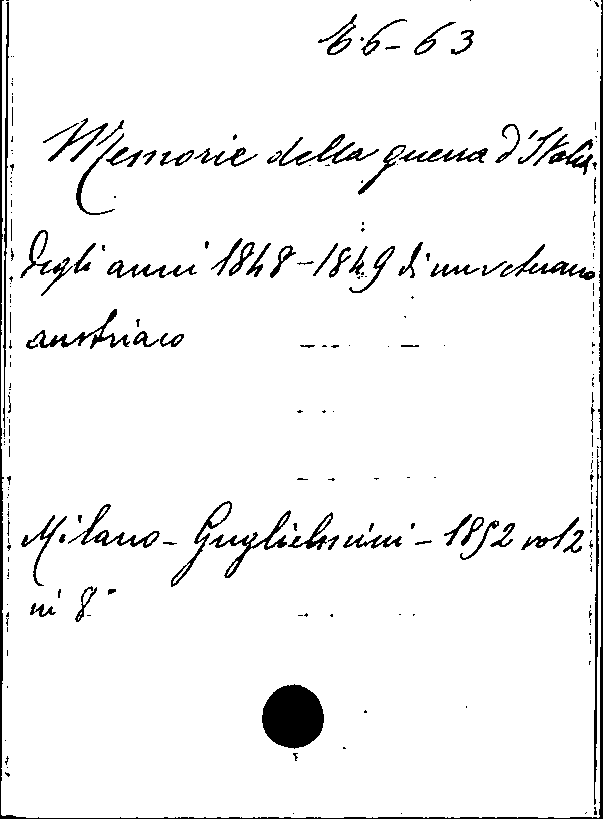 E.6-63
Memorie della guerra d'Italia
degli anni 1848-1849 di un veterano
austriaco
Milano - Guglielmini - 1852 vol 2
in 8°